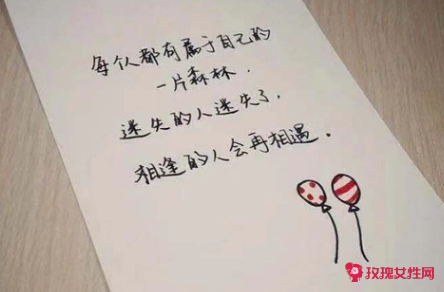 每个人都有属于自己的
一片森林.
迷失的人迷失了,
相逢的人会再相遇.
玫瑰女性网